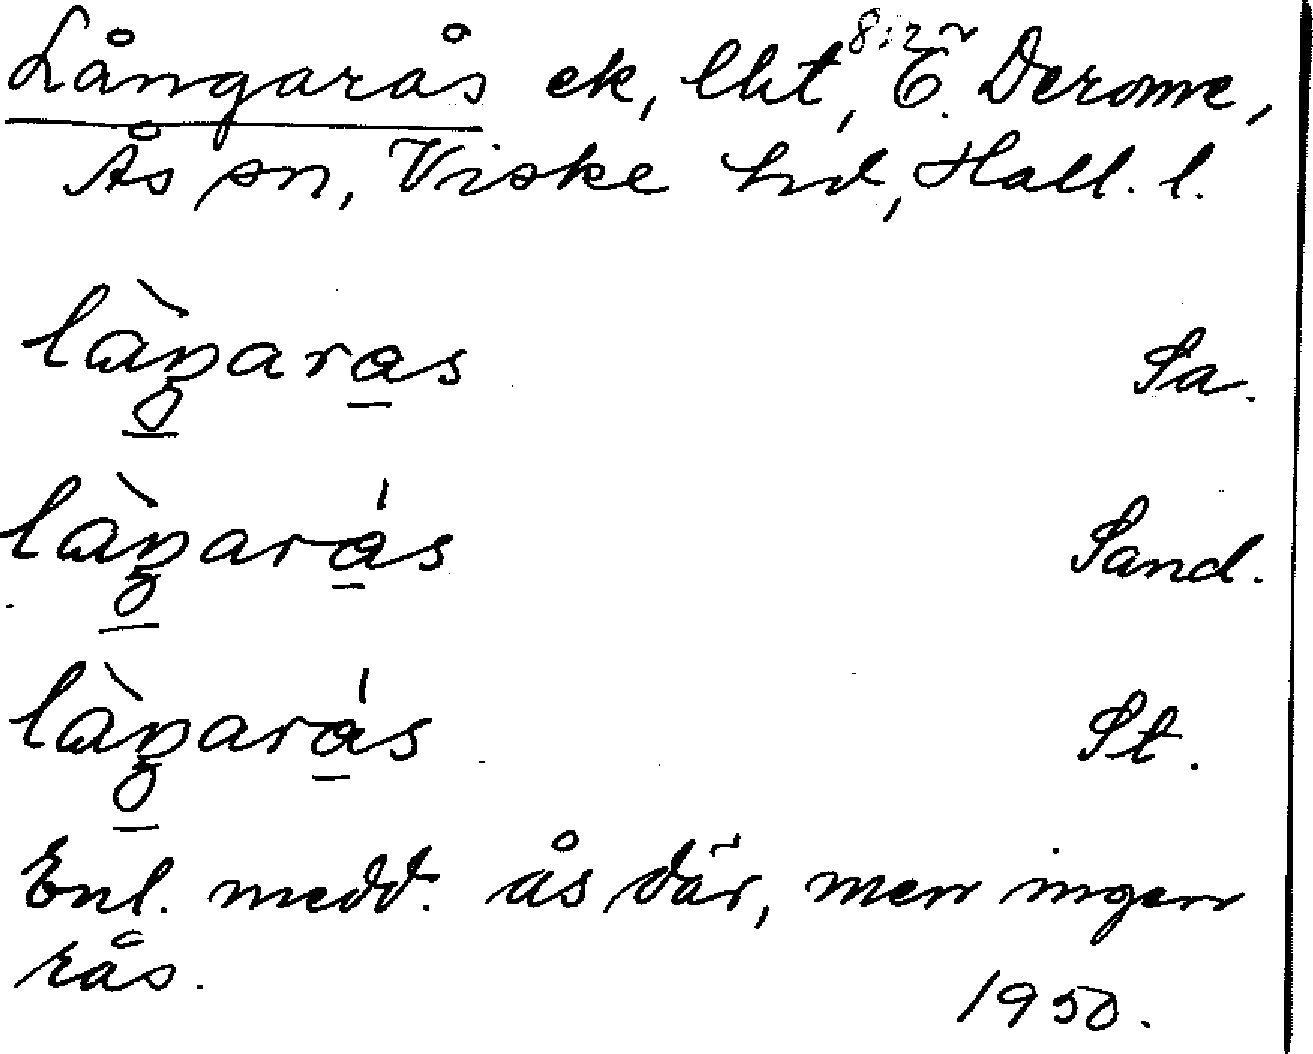 Långarås ek, lht, Ö. Derome,
Ås sn, Viske hd, Hall. l.
làŋaras Sa.
làŋarás Sand.
làŋarás St.
Enl. medd. ås där, men ingen
rås.
1950.